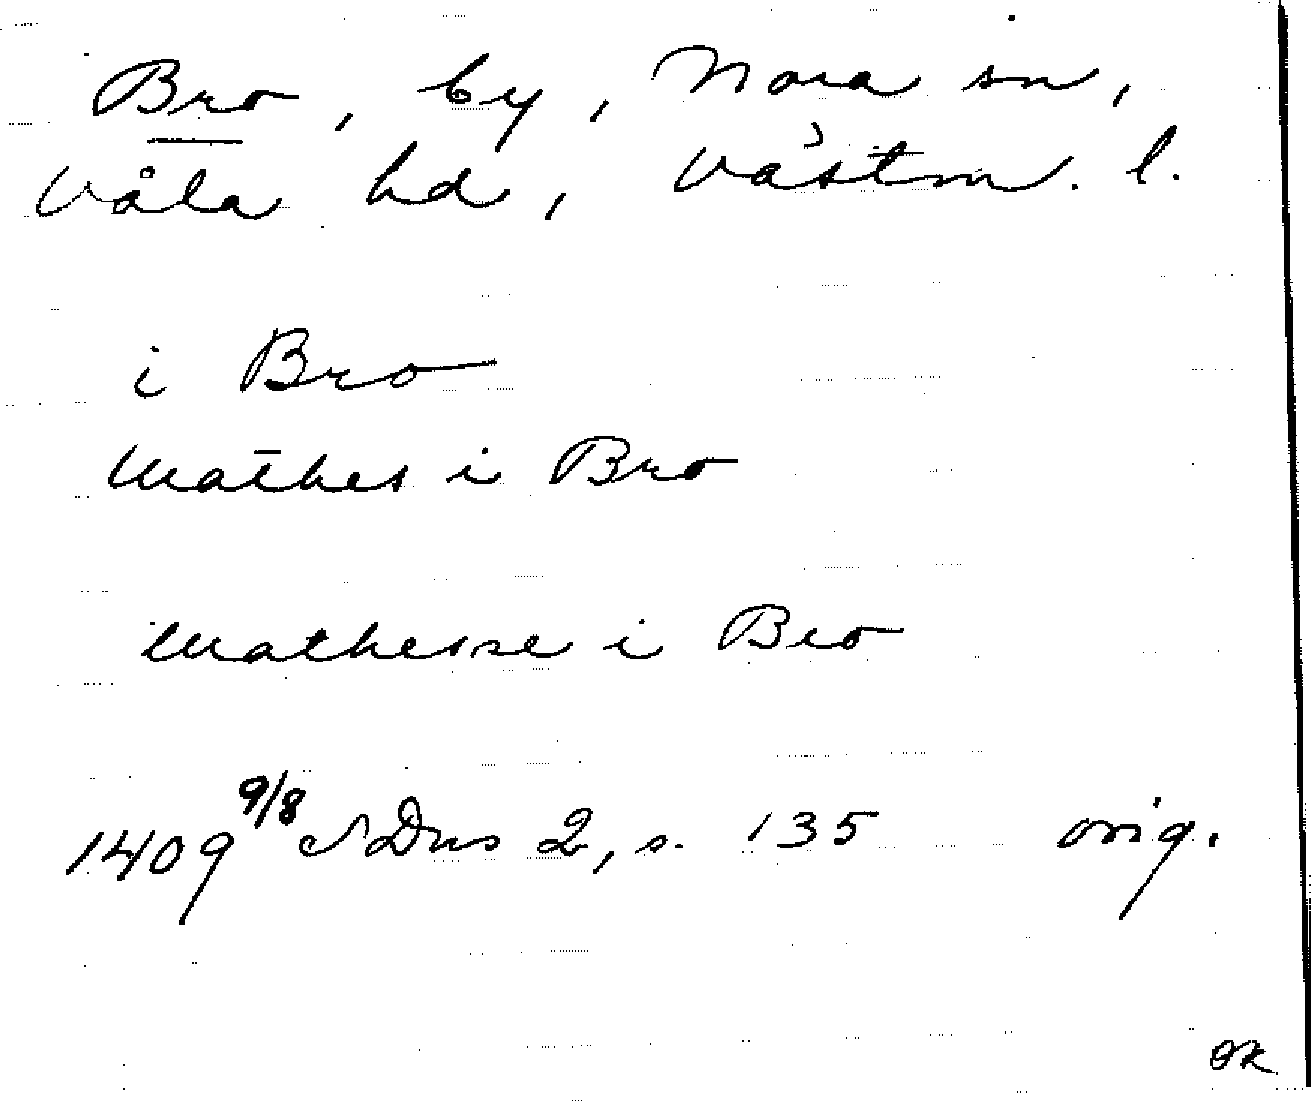 Bro, by, Nora sn,
Våla hd, Västm. l.
i Bro
Mathes i Bro
Mathesse i Bro
1409 9/8 SDns 2, s. 135 orig.